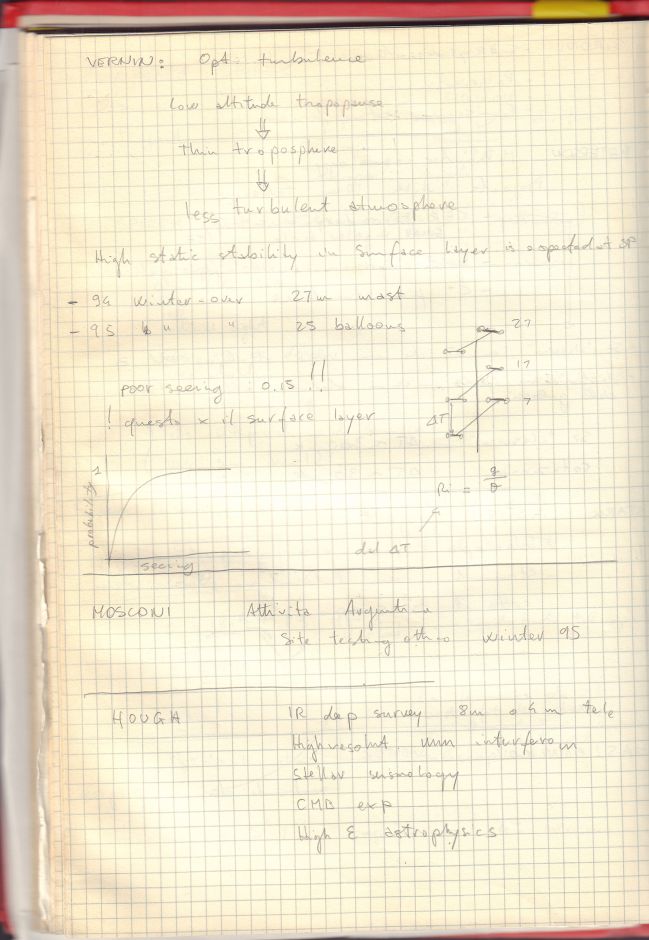 VERNIN: Opt. turbulence
Low altitude tropopause
⇓
Thin troposphere
⇓
less turbulent atmosphere
High static stability in surface layer is expected at SP
- 94 winter-over 27m mast
- 95 " " 25 balloons
27
17
7
ΔT
poor seeing 0.15 !!
! questo x il surface layer
1
probability
seeing
Ri = g/θ
dal ΔT
MOSCONI Attività Argentina
Site testing winter 95
HOUGH IR deep survey 8m o 4m tele
High resolut. mm interferom
Stellar seismology
CMB exp
High E astrophysics